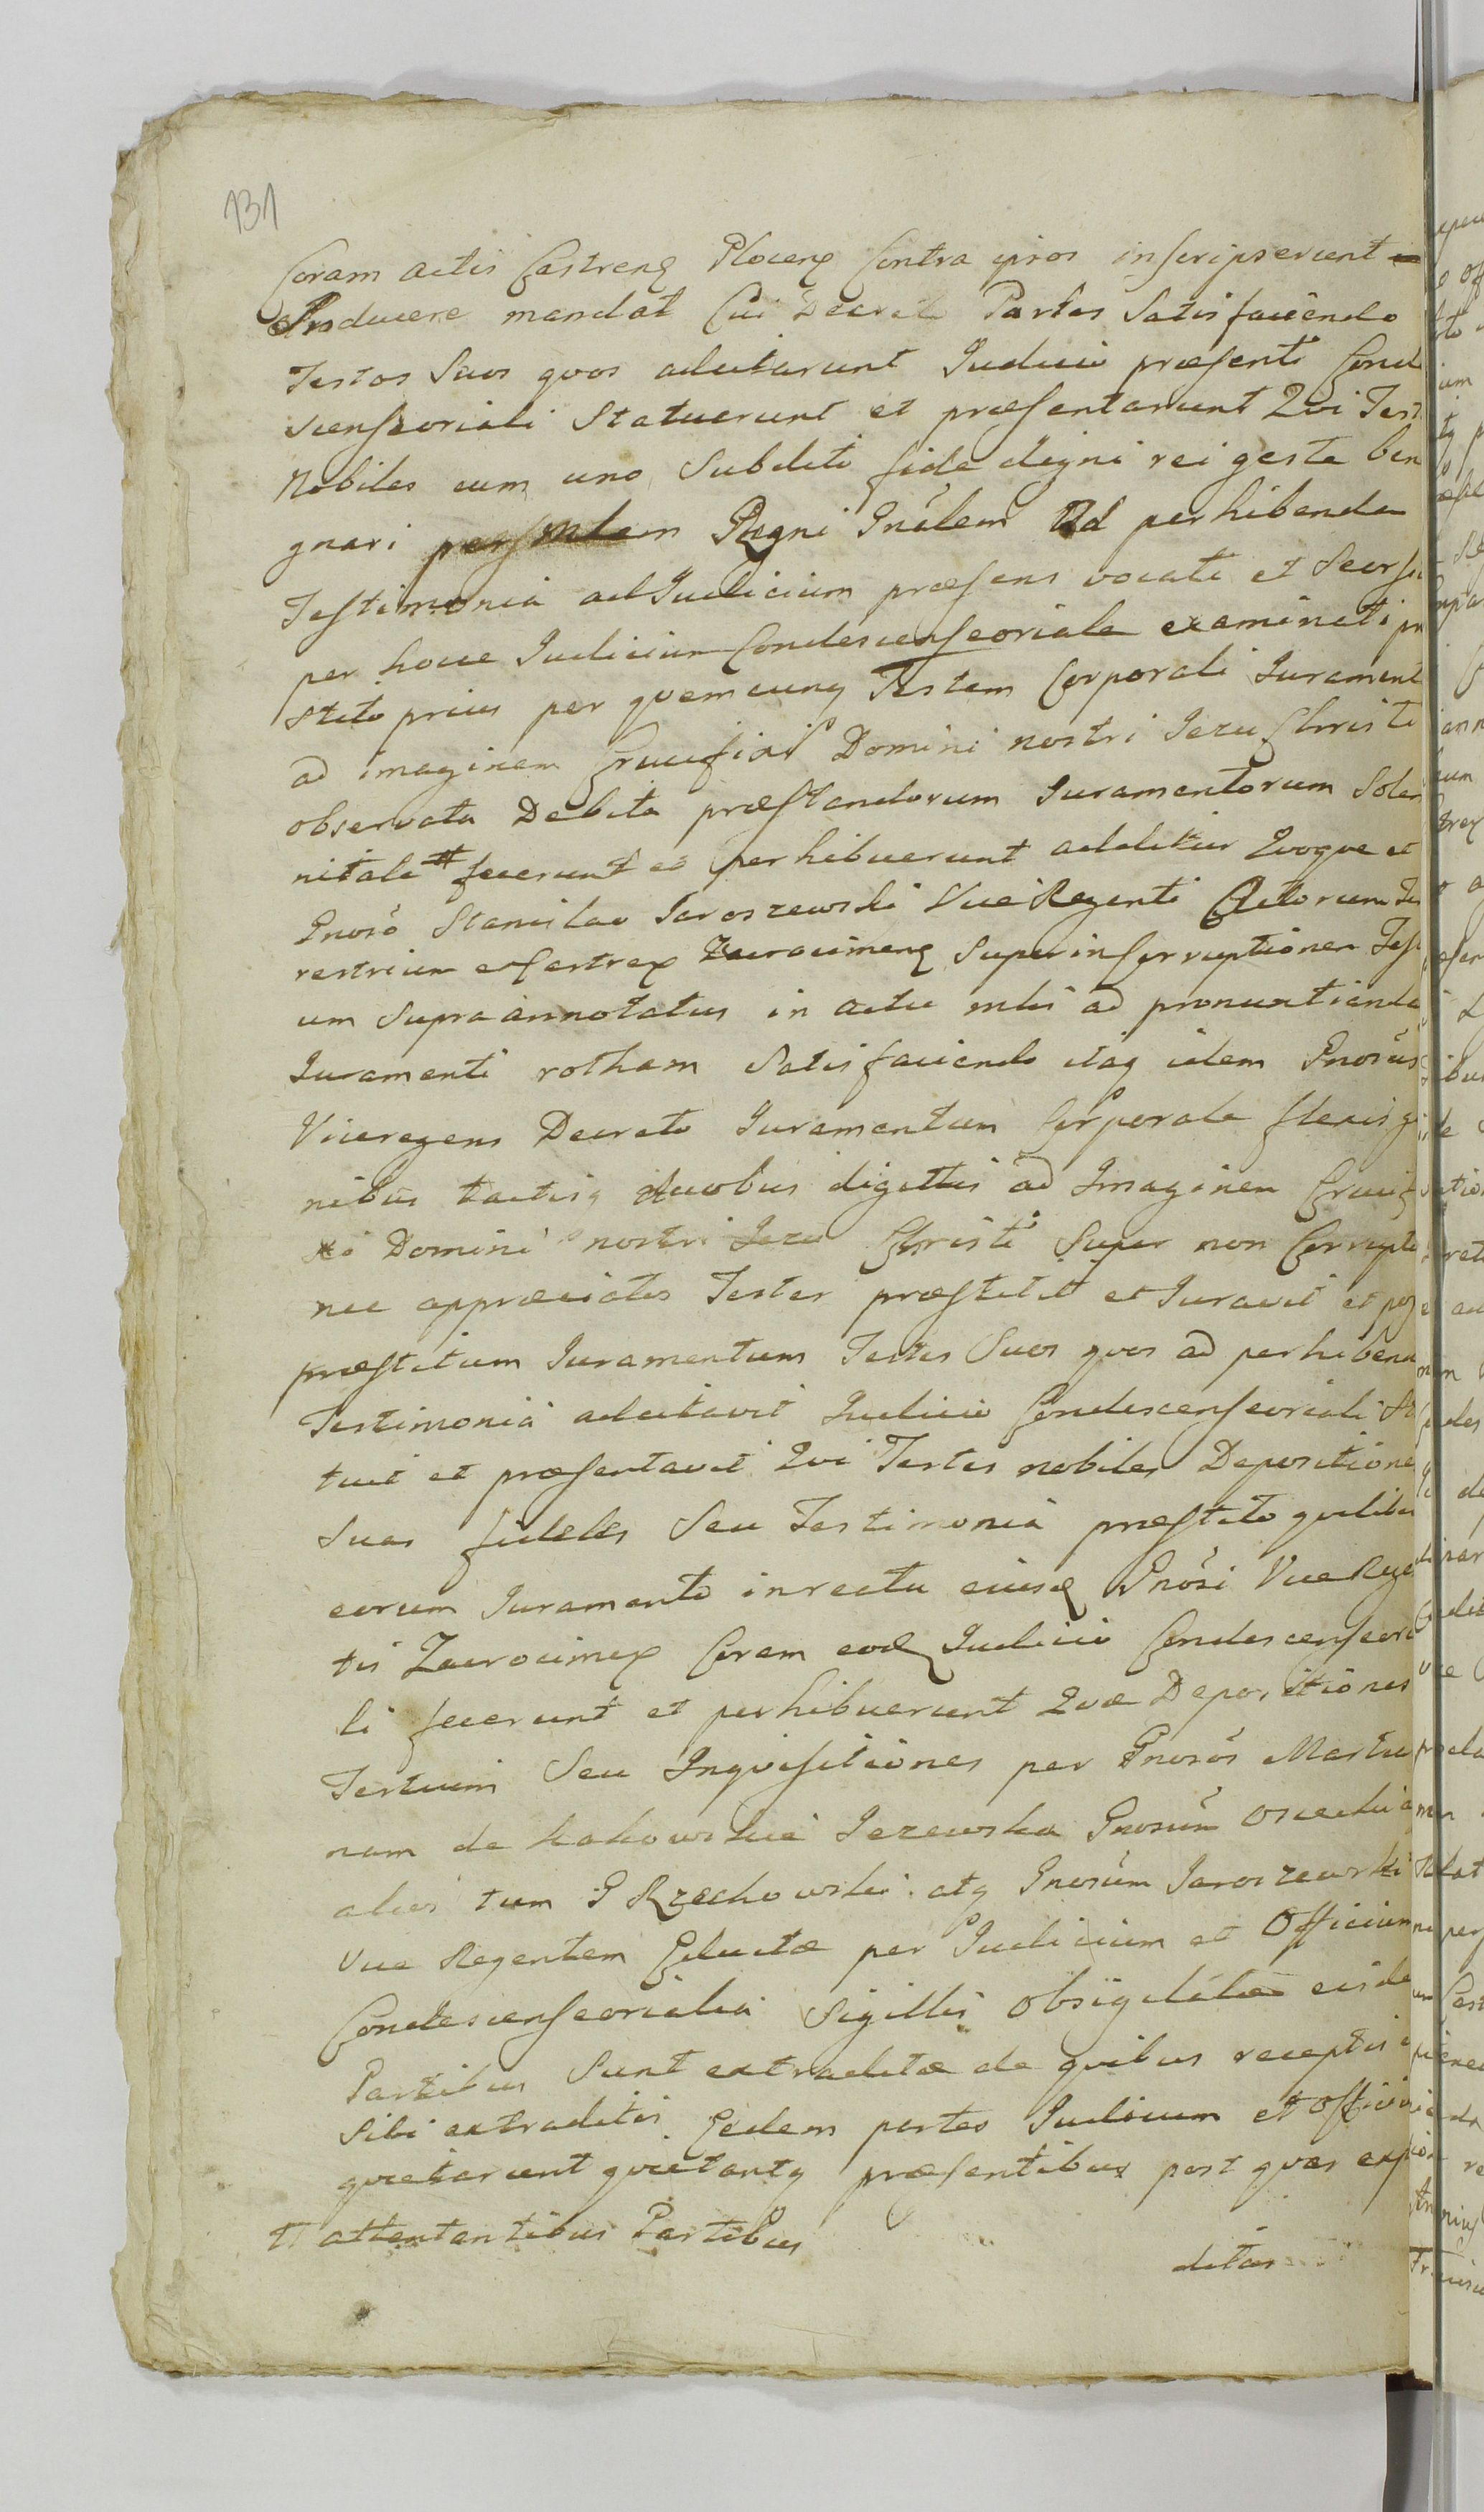 131
Coram actis Castrenς Plocenς Contra ipsos inscripserunt
Producere mandat Cui Decreto Partes Satisfaciendo
Testes Suos qvos adcitarunt Judicio præsenti Cond
scenseoriali Statuerunt et præsentarunt Qvi Test
Nobiles cum uno Subdito fide digni rei geste ben
gnari Regni Gnâlem Ad perhibenda
Testimonia ad Judicium præsens vocati et Seorsi
per hocce Judicium Condescenseoriale examinati pr
stito prius per qvemcunq Testem Corporali Jurament
ad imaginem Crucifixi Domini nostri Jezu Christi
observata Debita præstandorum Juramentorum Solen
nitate # fecerunt et perhibuerunt additur Qvoqve et
Gnoso Stanislao Jaroszewski ViceRegenti Actorum Ter
restrium et Castrex Zacrocimenς Super inscorruptionem Test
um Supra annotatus in actu mli ad pronuntianda
Juramenti rotham Satisfaciendo itaq idem Gnosus
Viceregens Decreto Juramentum Corporale flexis g
nibus tactisq duobus digittis ad Imaginem Crucif
xi Domini nostri Jezu Christi Super non Corrupto
nec appræciatos Testes præstitit et Juravit et post
præstitum Juramentum Testes Suos qvos ad perhibend
Testimonia adcitavit Judicio Condescenseoriali Sta
tuit et præsentavit Qvi Testes nobiles Depositiones
Suas fideles Seu Testimonia præstito qvilibet
eorum Juramento in rectu eiusς Gnosi ViceRege
tis Zacrocimex Coram eodς Judicio Condescenseoria
li fecerunt et perhibuerunt Qvæ Depositiones
Testium Seu Inqvisitiones per Gnosos Martia
nam de Kakowskie Jezewska Gnosum Osiecki
alias tum G Rzechowski atq Gnosum Jaroszewski
Vice Regentem Eductæ per Judicium et Officium
Condescenseorialia Sigillis Obsigilatæ eisde
Partibus Sunt extraditæ de qvibus receptis e
Sibi extraditis Eedem partes Judicium et Officium
qvietarunt qvietantq præsentibus post qvas exp
# attentantibus Partibus
ditas